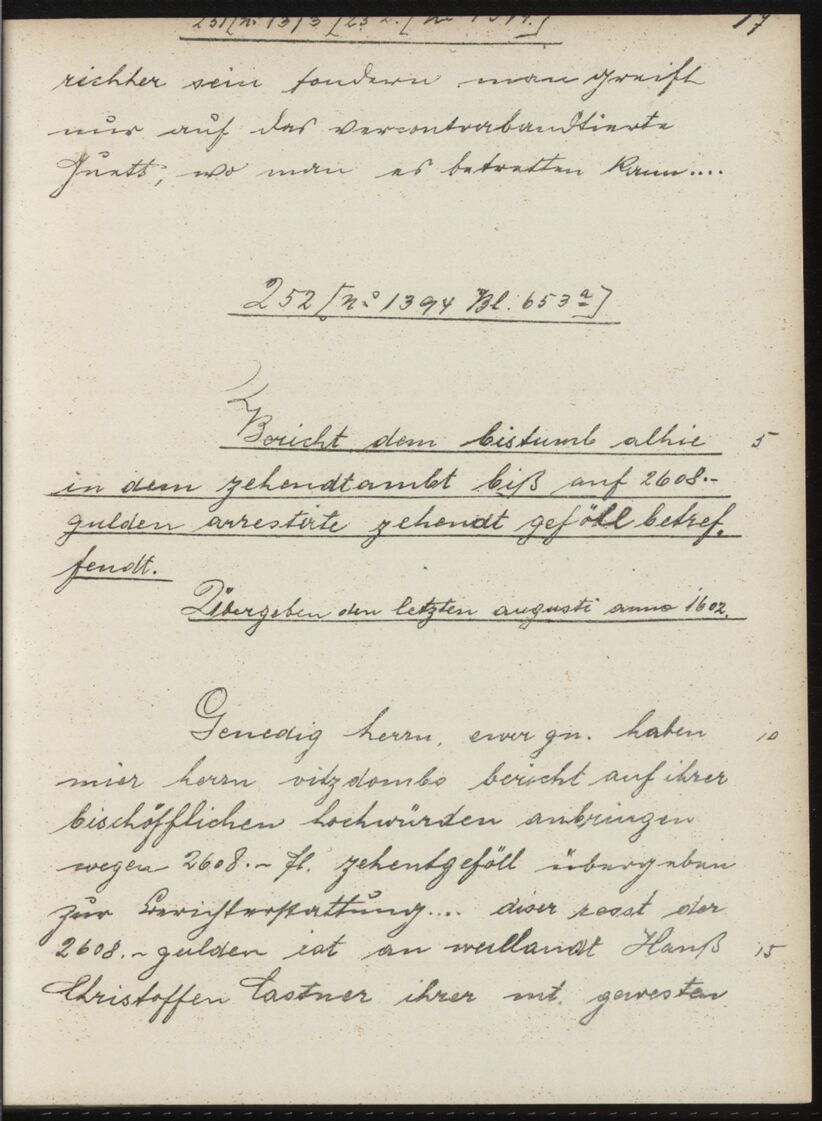 17
richter sein sondern man greift
nur auf das vercontrabandtierte
Guett, wo man es betretten kann....
252 [No 1394 Bl. 653a]
Bericht dem bistumb alhie 5
in dem zehendtambt biß auf 2608.-
gulden arrestirte zehendt geföll betref-
fendt.
Übergeben den letzten augusti anno 1602.
Genedig herrn, ewer gn. haben 10
mier herrn vitzdombs bericht auf ihrer
bischöfflichen hochwürden anbringen
wegen 2608.- fl. zehentgeföll übergeben
zur Berichterstattung.... diser resst der
2608.- gulden ist an weillandt Hanß 15
Christoffen Castner ihrer mt. gewesten